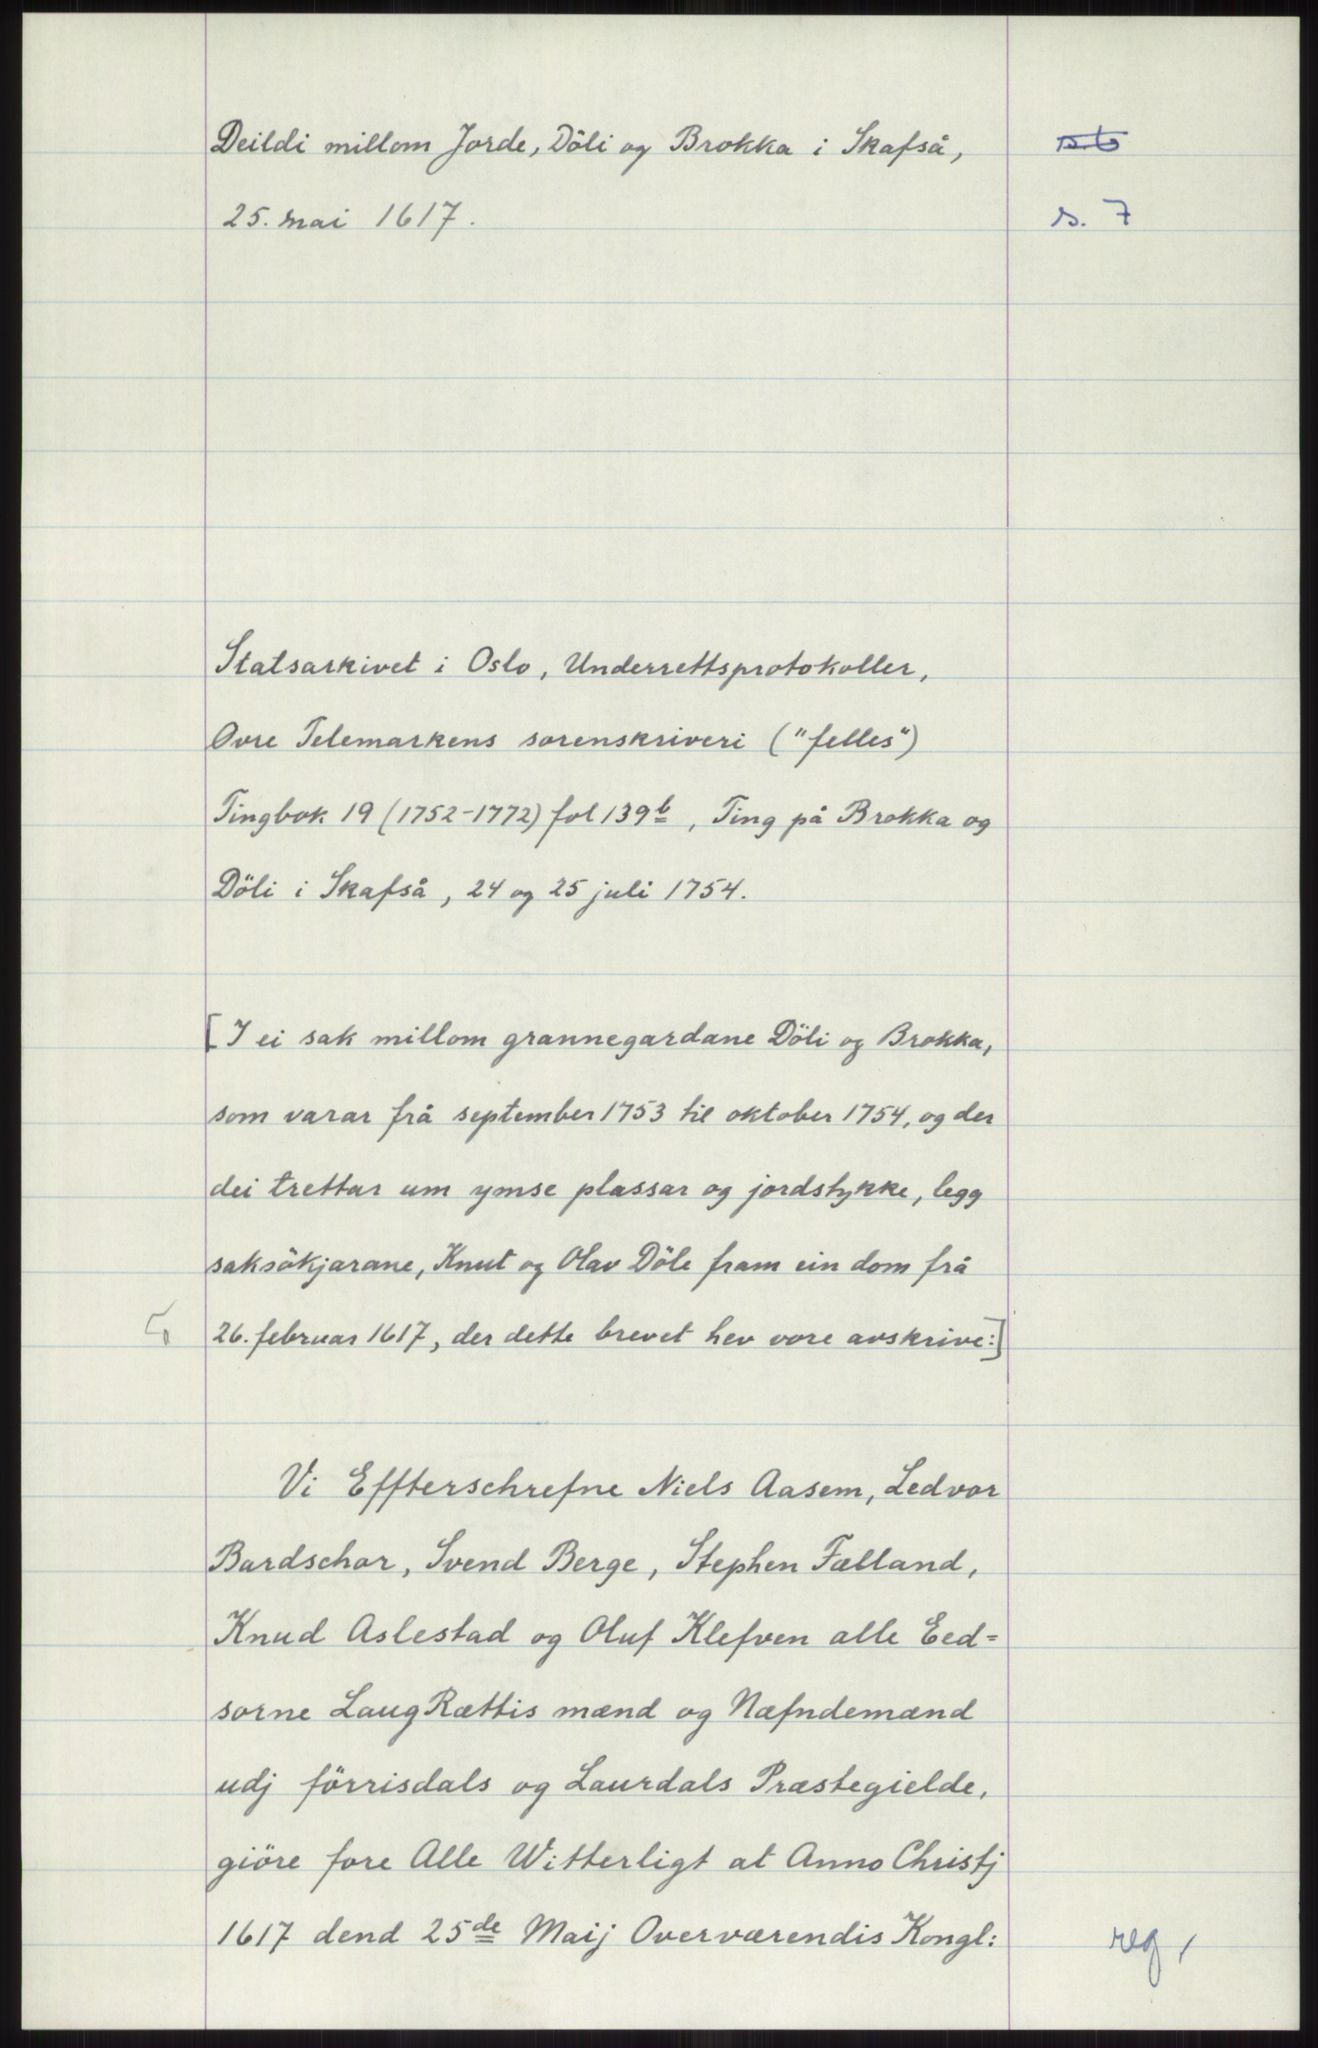 Deildi millom Jorde, Döli og Brokka i Skafså,
25. mai 1617.
s. 7
Statsarkivet i Oslo, Underrettsprotokoller,
Ovre Telemarkens sorenskriveri ("felles")
Tingbok 19 (1752-1772) fol 139b, Ting på Brokka og
Döli i Skafså, 24 og 25 juli 1754.
[I ei sak millom grannegardane Döli og Brokka,
som varar frå september 1753 til oktober 1754, og der
dei trettar um ymse plassar og jordstykke, legg
saksökjarane, Knut og Olav Döle fram ein dom frå
26. februar 1617, der dette brevet hev vore avskrive:]
Vi Effterschrefne Niels Aasem, Ledvor
Bardschor, Svend Berge, Stephen Fælland,
Knud Aslestad og Oluf Klefven alle Eed=
sorne LaugRættis mænd og Næfndemænd
udj förrisdals og Laurdals Præstegielde,
giöre fore Alle Witterligt at Anno Christj
1617 dend 25de Maij Overværendis Kongl:
reg,